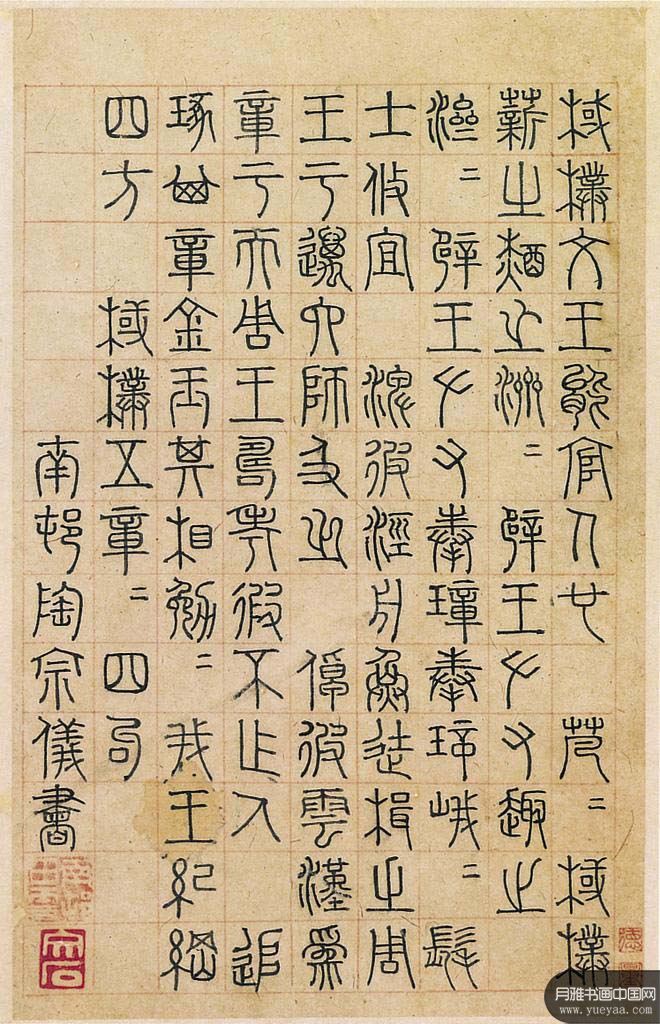 棫樸文王能官人也 芃〻棫樸
薪之槱之濟〻 辟王左右趣之
濟〻 辟王左右奉璋奉璋峨〻 髦
士攸宜 淠彼涇舟烝徒楫之周
王于邁六師及之 倬彼雲漢為
章于天周王壽考遐不作人 追
琢其章金玉其相勉〻 我王紀綱
四方 棫樸五章〻 四句
南邨陶宗儀書
月雅书画中国网
www.yueyaa.com